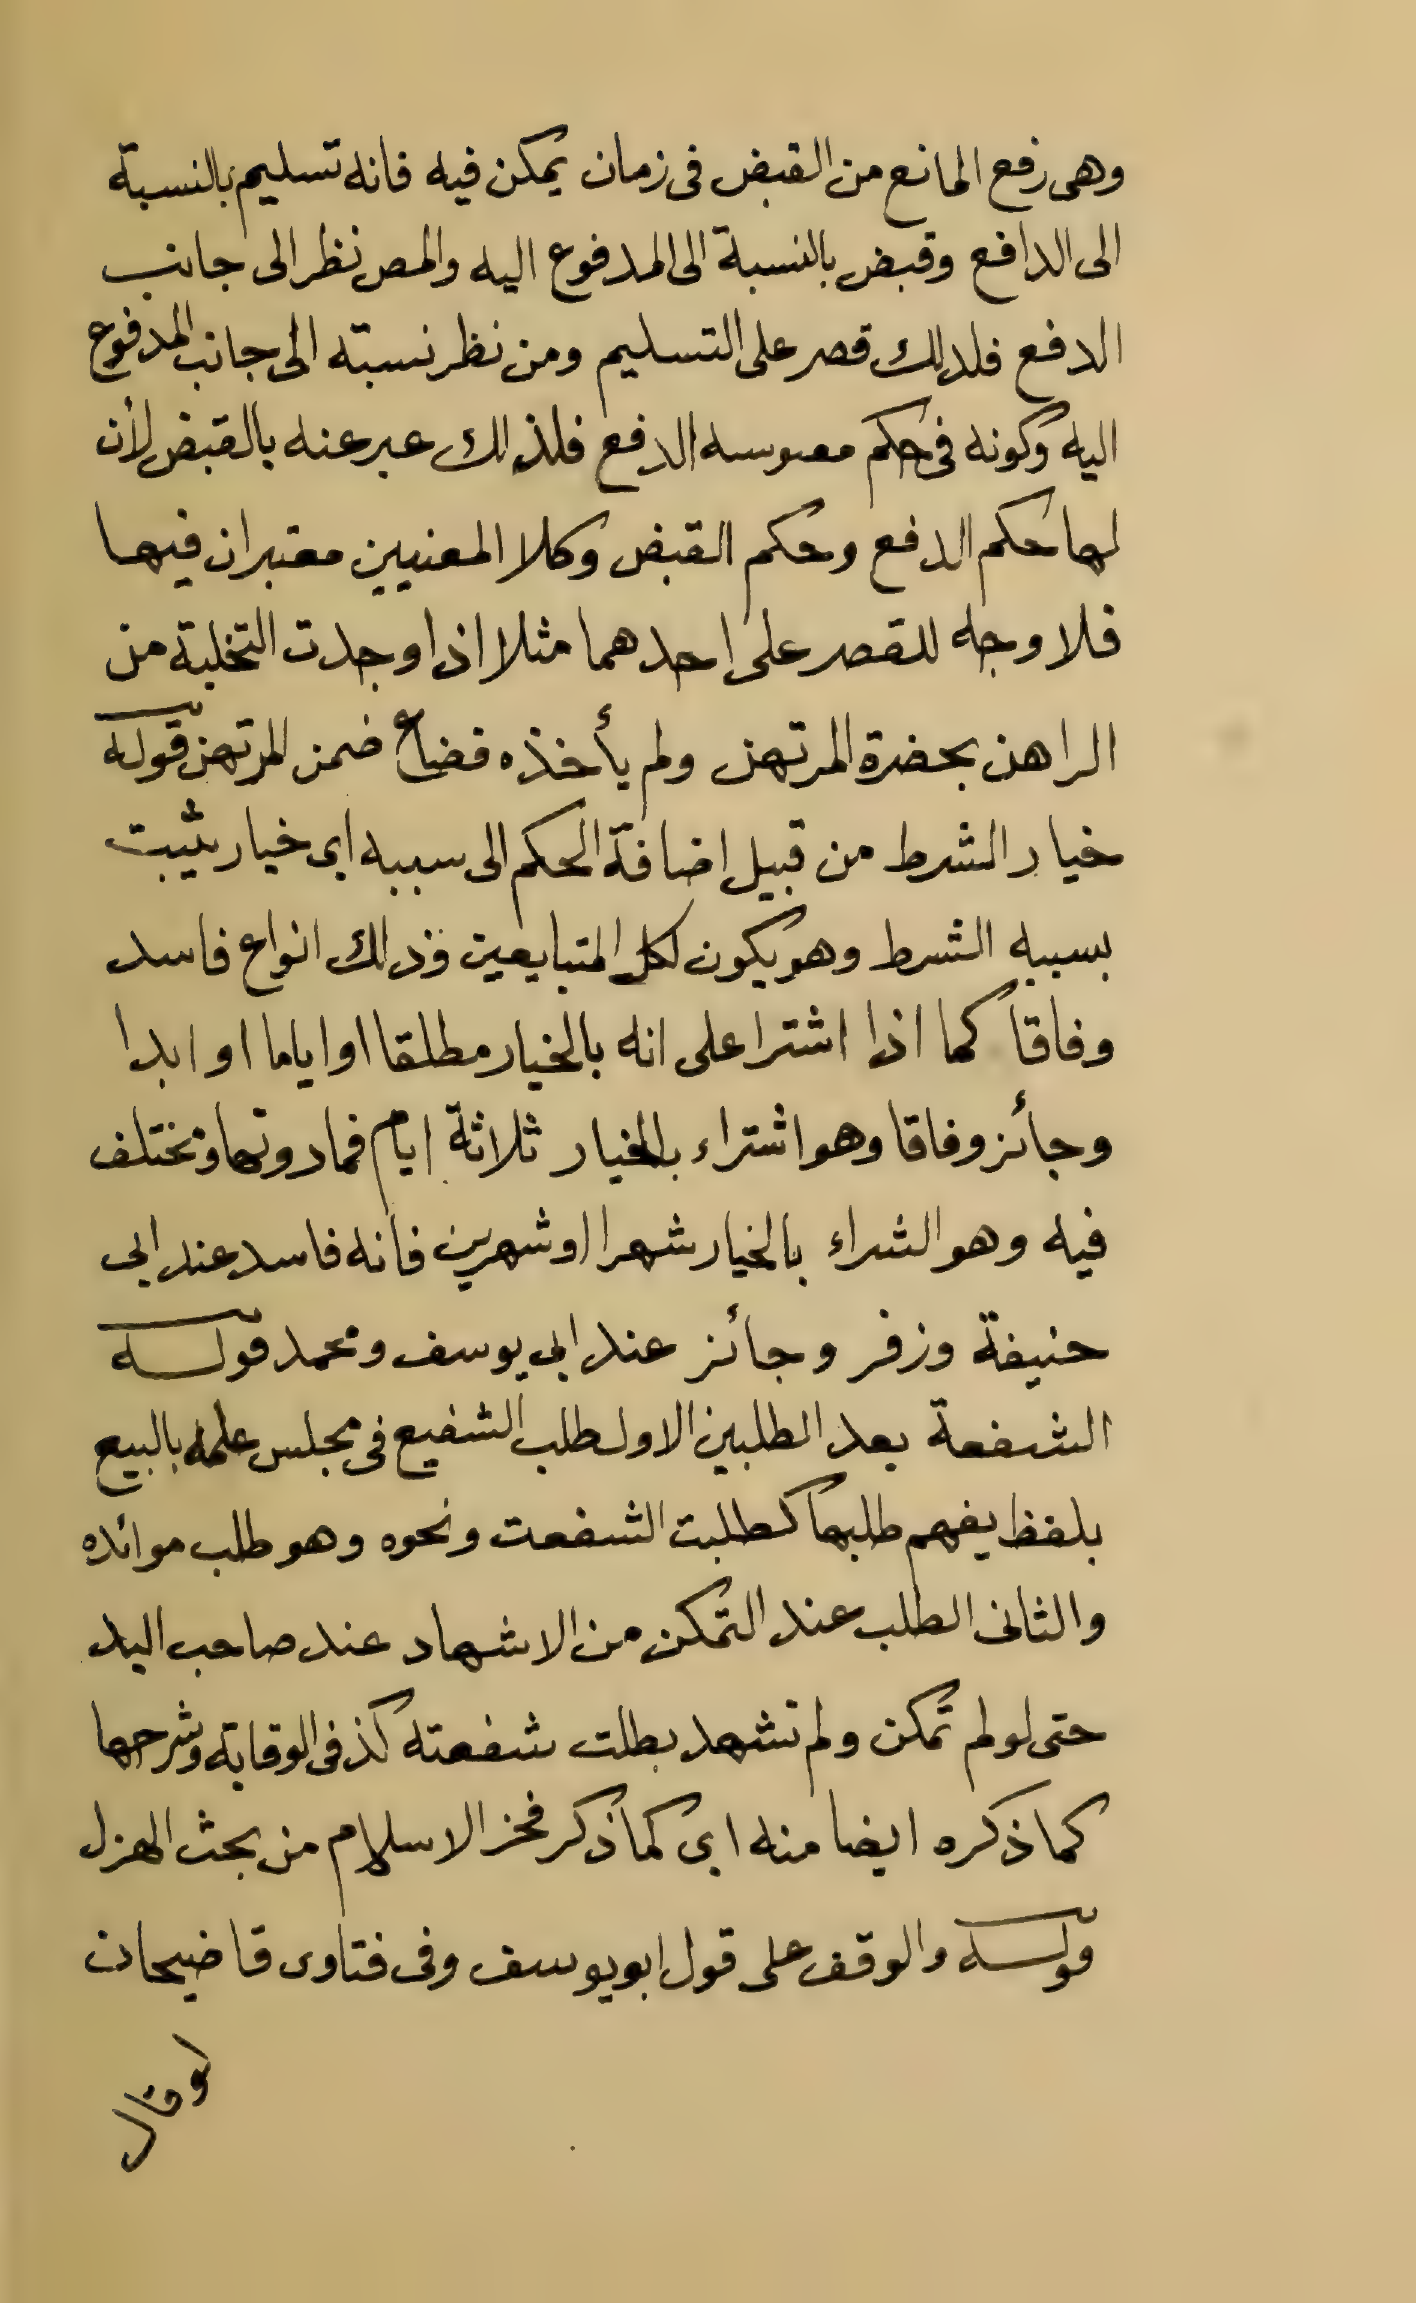 وهى رفع المانع من القبض فى زمان يمكن فيه فانه تسليم بالنسبة
الى الدافع وقبض بالنسبة الى المدفوع اليه والمص نظر الى جانب
الدفع فلدلك قصر على التسليم ومن نظر نسبته الى جانب المدفوع
اليه وكونه فى حكم الدفع فلذلك عبر عنه بالقبض لأن
لها حكم الدفع وحكم القبض وكلا المعنيين معتبران فيها
فلا وجه للقصر على احدهما مثلا اذا وجدت التخلية من
الراهن بحضرة المرتهن ولم يأخذه فضاع ضمن المرتهن قوله
خيار الشرط من قبيل اضافة الحكم الى سببه اى خيار يثبت
بسببه الشرط وهو يكون لكل المتبايعين وذلك انواع فاسد
وفاقا كما اذا اشترا على انه بالخيار مطلقا او اياما او ابدا
وجائز وفاقا وهو اشتراء بالخيار ثلاثة ايام فمادونها ومختلف
فيه وهو الشراء بالخيار شهرا اوشهرين فانه فاسد عند ابى
حنيفة وزفر وجائز عند ابى يوسف ومحمد قوله
الشفعة بعد الطلبين الاول طلب الشفيع فى مجلس علمه بالبيع
بلفظ يفهم طلبها كطلبت الشفعت ونحوه وهو طلب موائده
والثانى الطلب عند التمكن من الاشهاد عند صاحب اليد
حتى لو لم تمكن ولم تشهد بطلت شفعته كذ فى الوقاية وشرحها
كما ذكره ايضا منه اى كما ذكر فخر الاسلام من بحث الهزل
قوله والوقف على قول ابو يوسف وفى فتاوى قاضيحان
لو قال